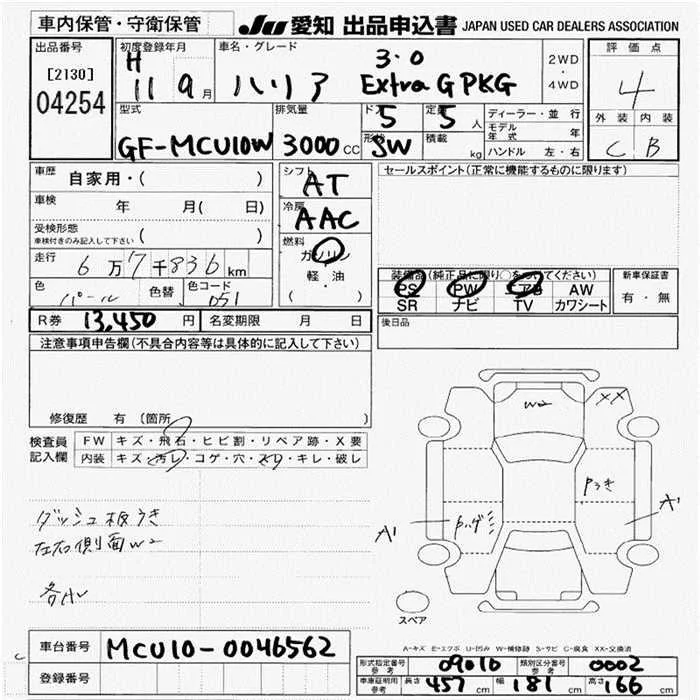 車内保管・守衛保管
JU 愛知 出品申込書 JAPAN USED CAR DEALERS ASSOCIATION
出品番号
[2130]
04254
初度登録年月
H
11 9月
車名・グレード
3.0
ハリアー Extra G PKG
2WD
・
4WD
評価点
4
外装 内装
C B
型式
GF-MCU10W
排気量
3000cc
ドア
5
定員
5人
形状
SW
積載
kg
ディーラー・並行
モデル年式 年
ハンドル 左・右
車歴
自家用・( )
車検
年 月( 日)
受検形態
車検付きのみ記入して下さい
( )
走行
6万7千836km
色
パール
色替
色コード
051
シフト
AT
冷房
AAC
燃料
ガソリン
軽・油
( ・ )
セールスポイント(正常に機能するものに限ります)
装備品(純正品に限り○をつけてください)
PS PW エアB AW
SR ナビ TV カワシート
新車保証書
有・無
後日品
R券 13,450円
名変期限 月 日
注意事項申告欄(不具合内容等は具体的に記入して下さい)
修復歴 有 (箇所
検査員
記入欄
FW キズ・飛石・ヒビ割・リペア跡・X要
内装 キズ・汚レ・コゲ・穴・スレ・キレ・破レ
ダッシュ板うき
左右側面W2
各小
W2
XX
Pうき
A1
A1
Pハゲ
スペア
A-キズ E-エクボ U-凹み W-補修跡 S-サビ C-腐食 XX-交換済
車台番号 MCU10-0046562
登録番号
形式指定番号
参考
09010
類別区分番号
参考
0002
車庫証明用
参考
長さ 457cm 幅 181cm 高さ 166cm